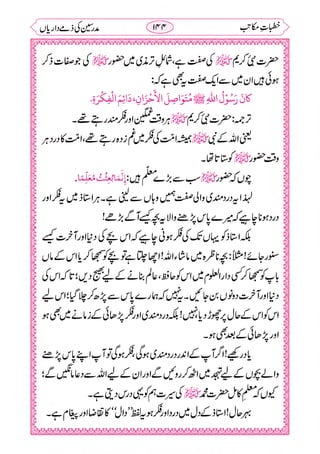 خطباتِ مکاتب ۱۴۴ مدرسین کی ذمے داریاں
حضرت نبیٔ کریم ﷺ کی صفت ہے، شمائلِ ترمذی میں حضور ﷺ کی جو صفات ذکر
ہوئی ہیں ان میں سے ایک صفت یہ بھی ہے کہ:
كَانَ رَسُوْلُ اللهِ ﷺ مُتَوَاصِلَ الْأَحْزَانِ، دَائِمَ الْفِكْرَةِ.
ترجمہ: حضرت نبیٔ کریم ﷺ ہر وقت غمگین اور فکر مند رہتے تھے۔
یعنی اللہ کے نبی ﷺ ہمیشہ امت کی فکر میں غم زدہ رہتے تھے، امت کا درد ہر
وقت حضور ﷺ کو ستاتا تھا۔
چوں کہ حضور ﷺ سب سے بڑے معلّم ہیں: إِنَّمَا بُعِثْتُ مُعَلِّمًا.
لہذا یہ دردمندی والی صفت ہمیں وہاں سے لینی ہے۔ استاذ میں درد اور فکر
ہونا چاہیے کہ میرے پاس پڑھنے والا یہ بچہ کیسے آگے بڑھے!
بلکہ استاذ کو یہاں تک کی فکر ہونی چاہیے کہ اس بچے کی دنیا اور آخرت کیسے
سنور جائے! مثلاً: بچہ ناظرہ میں ہے، ماشاء اللہ! اچھا چلتا ہے تو بچے کو سمجھا کر اس کے ماں
باپ کو سمجھا کر کسی دارالعلوم میں اس کو حافظ، عالم بنانے کے لیے بھیج دیں؛ تا کہ اس کی
دنیا اور آخرت دونوں بن جائیں۔ یہ نہیں کہ ہمارے پاس سے پڑھ کر چلا گیا؛ اس لیے
اس کو اس کے حال پر چھوڑ دیا، نہیں! بلکہ دردمندی اور فکر پڑھائی کے زمانے میں بھی ہو
اور پڑھائی کے بعد بھی ہو۔
یاد رکھیے! اگر آپ کے اندر دردمندی ہوگی، فکر ہوگی تو آپ اپنے پاس پڑھنے
والے بچوں کے لیے تہجد میں اٹھ کر روئیں گے اور ان کے لیے اللہ سے دعا مانگیں گے؛
کیوں کہ معلّمِ کامل حضرت محمد ﷺ کی سیرت ہم کو یہی درس دیتی ہے۔
بہرحال! استاذ کے دل میں درد اور فکر ہو یہ لفظ ”وال“ کا تقاضا اور پیغام ہے۔